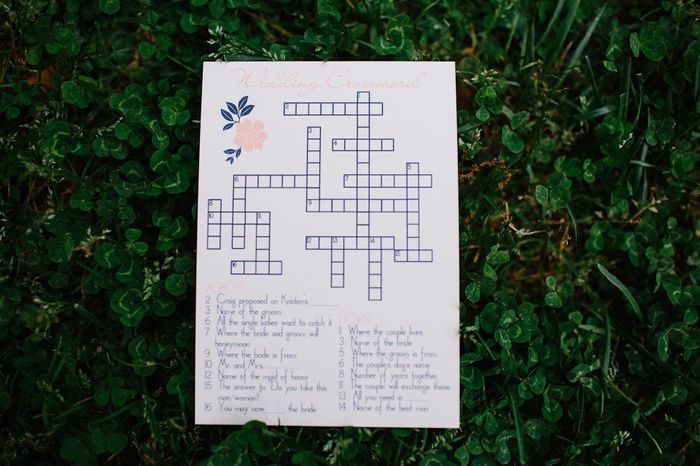 Wedding Crossword
1
2
3
4
5
6
7
8
9
10
11
12
13
14
15
16
ACROSS
2 Craig proposed on Kristen's ______
3 Name of the groom
6 All the single ladies want to catch it
7 Where the bride and groom will
honeymoon
9 Where the bride is from
10 Mr. and Mrs. ______
12 Name of the maid of honor
15 The answer to 'Do you take this
man/woman?'
16 You may now _____ the bride
DOWN
1 Where the couple lives
3 Name of the bride
5 Where the groom is from
6 The couple's dog's name
8 Number of years together
11 The couple will exchange these
13 All you need is _____
14 Name of the best man